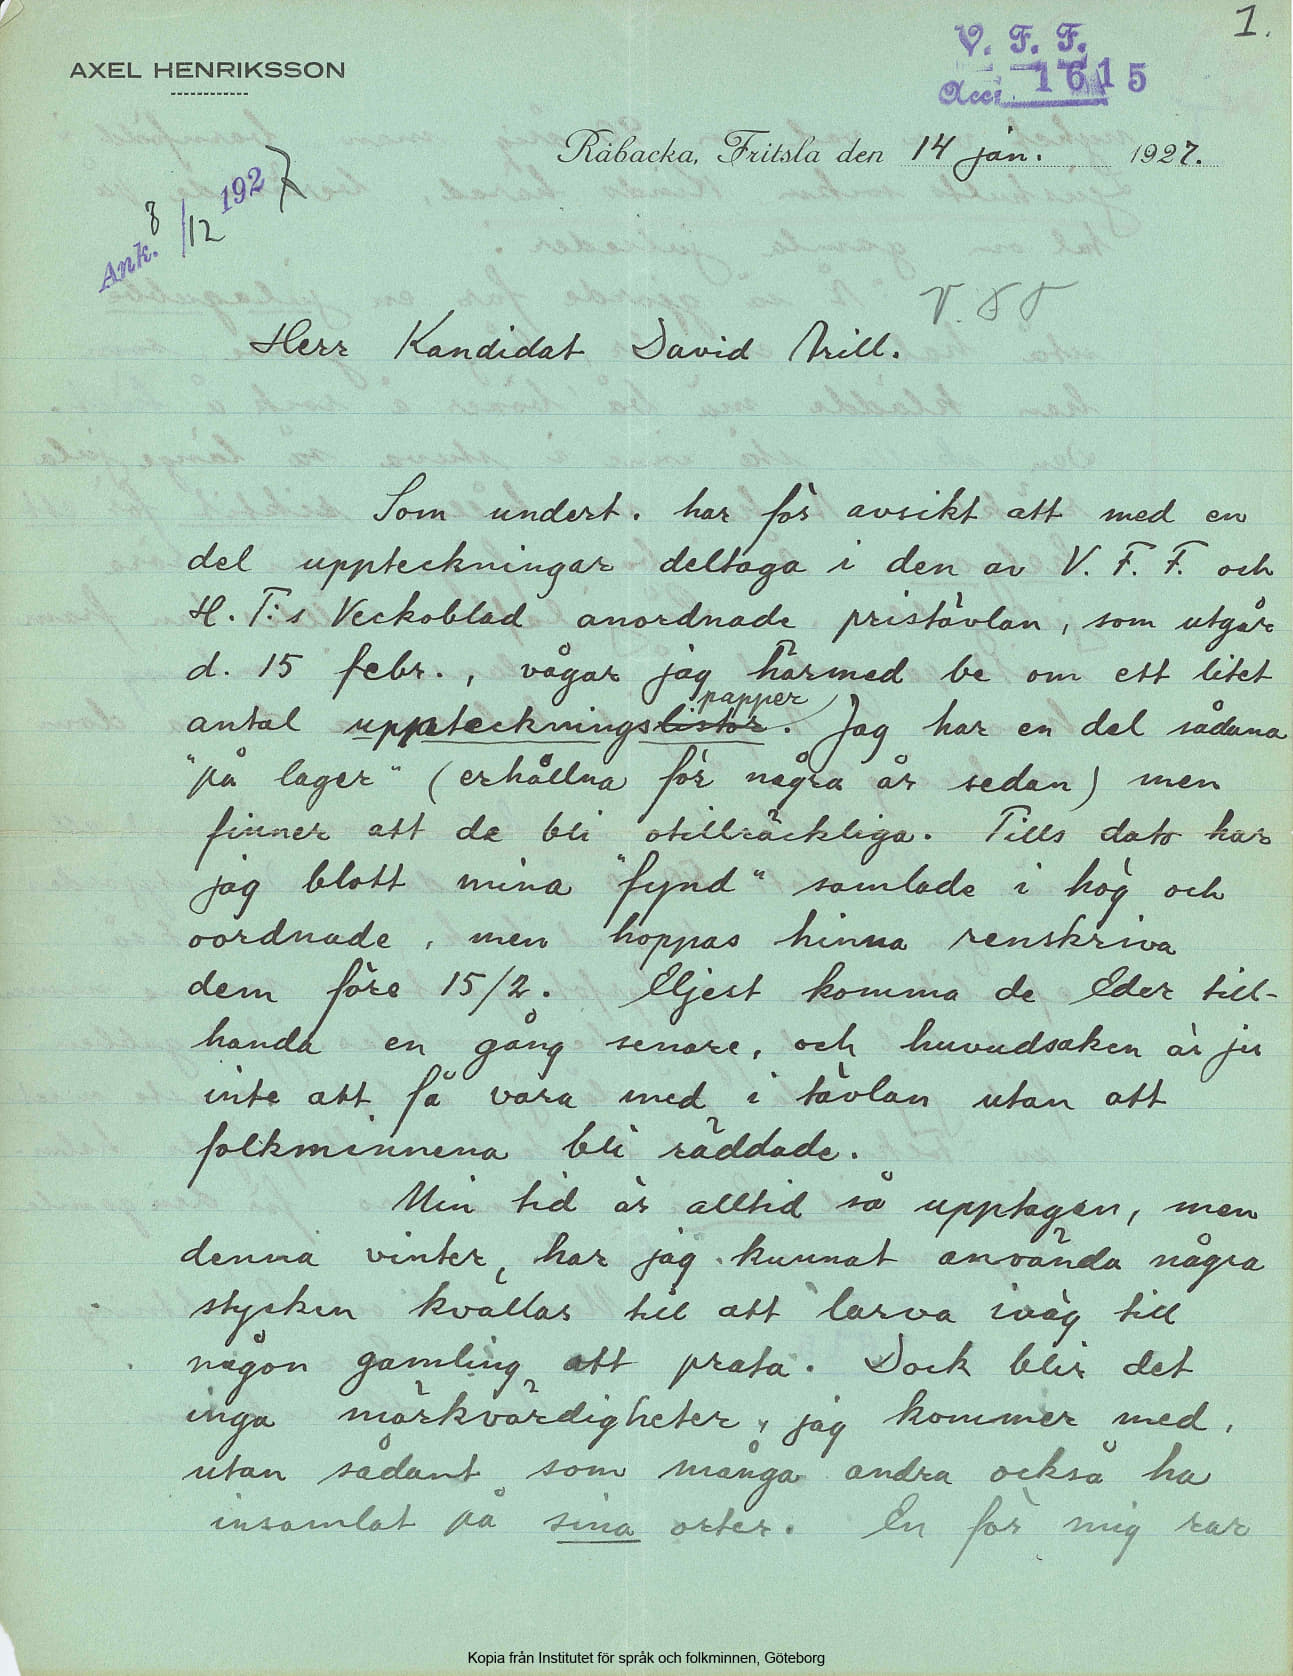 1.
AXEL HENRIKSSON
V. F. F.
Acc. 1615
Råbacka, Fritsla den 14 jan. 1927.
Ank. 8/12 1927
V.F.F
Herr Kandidat David Arill.
Som undert. har för avsikt att med en
del uppteckningar deltaga i den av V. F. F. och
H. T:s Veckoblad anordnade pristävlan, som utgår
d. 15 febr., vågar jag härmed be om ett litet
papper
antal uppteckningslistor. Jag har en del sådana
"på lager" (erhållna för några år sedan) men
finner att de bli otillräckliga. Tills dato har
jag blott mina "fynd" samlade i hög och
oordnade, men hoppas hinna renskriva
dem före 15/2. Eljest komma de Eder till-
handa en gång senare, och huvudsaken är ju
inte att få vara med i tävlan utan att
folkminnena bli räddade.
Min tid är alltid så upptagen, men
denna vinter, har jag kunnat använda några
stycken kvällar till att larva iväg till
någon gamling att prata. Dock blir det
inga märkvärdigheter, jag kommer med,
utan sådant som många andra också ha
insamlat på sina orter. En för mig rar
Kopia från Institutet för språk och folkminnen, Göteborg